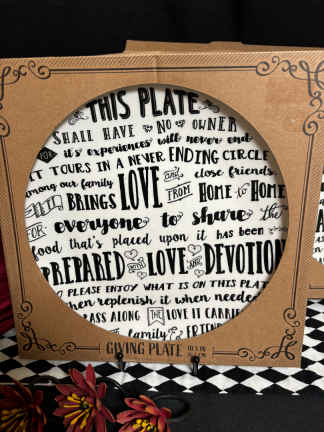 THIS PLATE
SHALL HAVE NO OWNER
FOR it's experiences will never end
IT TOURS IN A NEVER ENDING CIRCLE
among our family and close friends.
IT BRINGS LOVE FROM HOME to HOME
FOR everyone to share the
food that's placed upon it has been
PREPARED with LOVE and DEVOTION
SO PLEASE ENJOY WHAT IS ON THIS PLATE
then replenish it when needed
PASS ALONG THE LOVE IT CARRIES
family & FRIENDS
GIVING PLATE